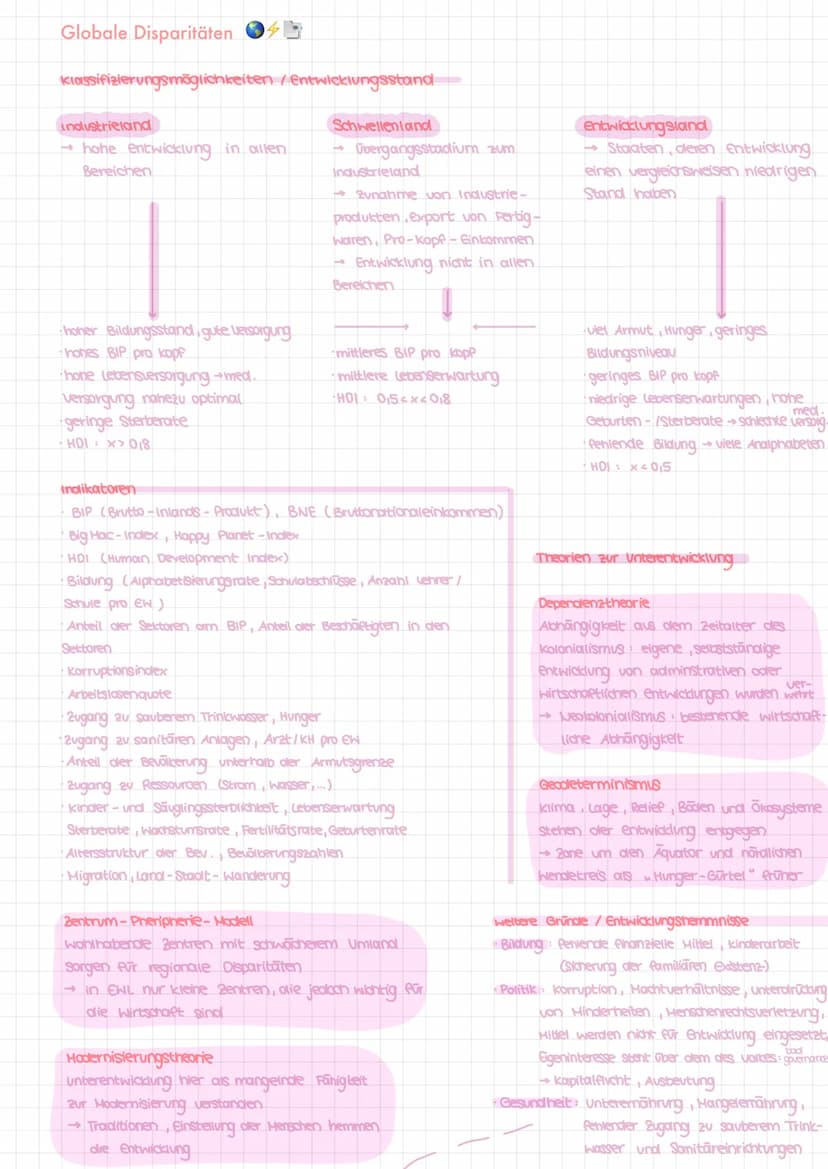 Globale Disparitäten 🌎⚡📄
Klassifizierungsmöglichkeiten / Entwicklungsstand
Industrieland
→ hohe Entwicklung in allen
Bereichen
· hoher Bildungsstand, gute Versorgung
· hohes BIP pro Kopf
· hohe Lebensversorgung → med.
Versorgung nahezu optimal
· geringe Sterberate
· HDI : x > 0,8
Schwellenland
→ Übergangsstadium zum
Industrieland
→ Zunahme von Industrie-
produkten, Export von Fertig-
waren, Pro-Kopf-Einkommen
→ Entwicklung nicht in allen
Bereichen
· mittleres BIP pro Kopf
· mittlere Lebenserwartung
· HDI : 0,5 < x < 0,8
Entwicklungsland
→ Staaten, deren Entwicklung
einen vergleichsweisen niedrigen
Stand haben
· viel Armut, Hunger, geringes
Bildungsniveau
· geringes BIP pro Kopf
· niedrige Lebenserwartungen, hohe
Geburten-/Sterberate → schlechte med. Versorg.
· fehlende Bildung → viele Analphabeten
· HDI : x < 0,5
Indikatoren
· BIP (Brutto-Inlands-Produkt), BNE (Bruttonationaleinkommen)
· Big Mac-Index, Happy Planet-Index
· HDI (Human Development Index)
· Bildung (Alphabetisierungsrate, Schulabschlüsse, Anzahl Lehrer /
Schule pro EW)
· Anteil der Sektoren am BIP, Anteil der Beschäftigten in den
Sektoren
· Korruptionsindex
· Arbeitslosenquote
· Zugang zu sauberem Trinkwasser, Hunger
· Zugang zu sanitären Anlagen, Arzt/KH pro EW
· Anteil der Bevölkerung unterhalb der Armutsgrenze
· Zugang zu Ressourcen (Strom, Wasser,...)
· Kinder- und Säuglingssterblichkeit, Lebenserwartung
Sterberate, Wachstumsrate, Fertilitätsrate, Geburtenrate
· Altersstruktur der Bev., Bevölkerungszahlen
· Migration, Land-Stadt-Wanderung
Theorien zur Unterentwicklung
Dependenztheorie
Abhängigkeit aus dem Zeitalter des
Kolonialismus : eigene, selbstständige
Entwicklung von adminstrativen oder
wirtschaftlichen Entwicklungen wurden ver-
wehrt
→ Neokolonialismus : bestehende wirtschaft-
liche Abhängigkeit
Geodeterminismus
Klima, Lage, Relief, Böden und Ökosysteme
stehen der Entwicklung entgegen
→ Zone um den Äquator und nördlichen
Wendekreis als „Hunger-Gürtel" früher
Zentrum-Pheripherie-Modell
Wohlhabende Zentren mit schwächerem Umland
sorgen für regionale Disparitäten
→ in EWL nur kleine Zentren, die jedoch wichtig für
die Wirtschaft sind
Modernisierungstheorie
Unterentwicklung hier als mangelnde Fähigkeit
zur Modernisierung verstanden
→ Traditionen, Einstellung der Menschen hemmen
die Entwicklung
weitere Gründe / Entwicklungshemmnisse
· Bildung : fehlende finanzielle Mittel, Kinderarbeit
(Sicherung der familiären Existenz)
· Politik : Korruption, Machtverhältnisse, Unterdrückung
von Minderheiten, Menschenrechtsverletzung,
Mittel werden nicht für Entwicklung eingesetzt,
Eigeninteresse steht über dem des Volkes : bad governance
→ Kapitalflucht, Ausbeutung
· Gesundheit : Unterernährung, Mangelernährung,
fehlender Zugang zu sauberem Trink-
wasser und Sanitäreinrichtungen